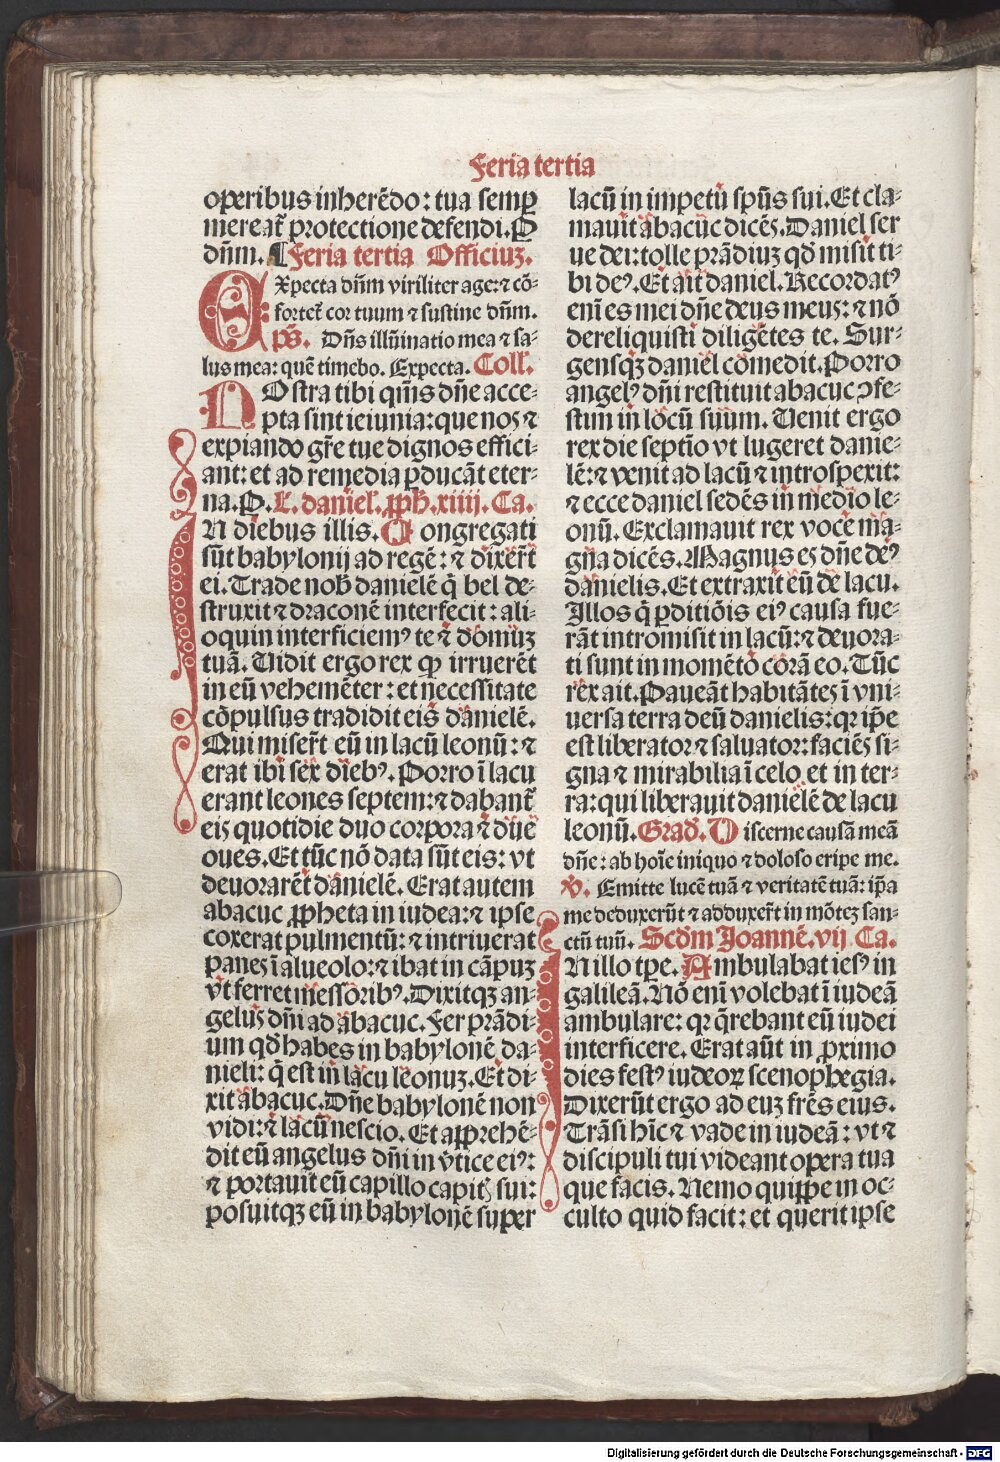 Feria tertia
operibus inherẽdo: tua semꝑ
mereat᷑ protectione defendi. P
dñm. ¶ Feria tertia Officiuꝫ.
Expecta dñm viriliter age: ⁊ cõ-
fortet᷑ cor tuum ⁊ sustine dñm.
ps̃. Dñs illũinatio mea ⁊ sa-
lus mea: quẽ timebo. Expecta. Coll̃.
NOstra tibi qm̃s dñe acce-
pta sint ieiunia: que nos ⁊
expiando gr̃e tue dignos effici-
ant: et ad remedia ꝑducãt eter-
na. P. L̃. daniel̃. ꝓph̃. xiiij. Ca.
IN diebus illis. Congregati
sũt babylonij ad regẽ: ⁊ dixer̃t
ei. Trade nob̃ danielẽ q̃ bel de-
struxit ⁊ draconẽ interfecit: ali-
oquin interficiemꝰ te ⁊ domũꝫ
tuã. Uidit ergo rex ꝙ irruerẽt
in eũ vehemẽter: et necessitate
cõpulsus tradidit eis danielẽ.
Qui miser̃t eũ in lacũ leonũ: ⁊
erat ibi sex diebꝰ. Porro ĩ lacu
erant leones septem: ⁊ dabant᷑
eis quotidie duo corpora ⁊ due
oues. Et tũc nõ data sũt eis: vt
deuorarẽt danielẽ. Erat autem
abacuc ꝓpheta in iudea: ⁊ ipse
coxerat pulmentũ: ⁊ intriuerat
panes ĩ alueolo: ⁊ ibat in cãpuꝫ
vt ferret messoribꝰ. Dixitqꝫ an-
gelus dñi ad abacuc. Fer prãdi-
um qd̃ habes in babylonẽ da-
nieli: q̃ est in lacu leonuꝫ. Et di-
xit abacuc. Dñe babylonẽ non
vidi: ⁊ lacũ nescio. Et apprehẽ-
dit eũ angelus dñi in v̾tice eiꝰ:
⁊ portauit eũ capillo capitꝭ sui:
posuitqꝫ eũ in babylonẽ super
lacũ in impetu sp̃us sui. Et cla-
mauit abacuc dicẽs. Daniel ser
ue dei: tolle prãdiuꝫ qd̃ misit ti-
bi deꝰ. Et ait daniel. Recordatꝰ
enĩ es mei dñe deus meus: ⁊ nõ
dereliquisti diligẽtes te. Sur-
gensqꝫ daniel comedit. Porro
angelꝰ dñi restituit abacuc ꝯfe-
stim in locũ suum. Uenit ergo
rex die septĩo vt lugeret danie-
lẽ: ⁊ venit ad lacũ ⁊ introspexit:
⁊ ecce daniel sedẽs in medio le-
onũ. Exclamauit rex voce ma-
gna dicẽs. Magnus es dñe deꝰ
danielis. Et extraxit eũ de lacu.
Illos q̃ ꝑditiõis eiꝰ causa fue-
rãt intromisit in lacũ: ⁊ deuora-
ti sunt in momẽto corã eo. Tũc
rex ait. Paueãt habitãtes ĩ vni-
uersa terra deũ danielis: qꝛ ip̃e
est liberator ⁊ saluator: faciẽs si-
gna ⁊ mirabilia ĩ celo et in ter-
ra: qui liberauit danielẽ de lacu
leonũ. Grad̃. Discerne causã meã
dñe: ab hoĩe iniquo ⁊ doloso eripe me.
℣. Emitte lucẽ tuã ⁊ veritatẽ tuã: ip̃a
me deduxerũt ⁊ adduxer̃t in mõteꝫ san-
ctũ tuũ. Scd̃m Joannẽ. vij Ca.
IN illo tp̃e. Ambulabat iesꝰ in
galileã. Nõ enĩ volebat ĩ iudeã
ambulare: qꝛ q̃rebant eũ iudei
interficere. Erat aũt in ꝓximo
dies festꝰ iudeoꝝ scenophegia.
Dixerũt ergo ad euꝫ fr̃es eius.
Trãsi hĩc ⁊ vade in iudeã: vt ⁊
discipuli tui videant opera tua
que facis. Nemo quippe in oc-
culto quid facit: et querit ipse
Digitalisierung gefördert durch die Deutsche Forschungsgemeinschaft - DFG